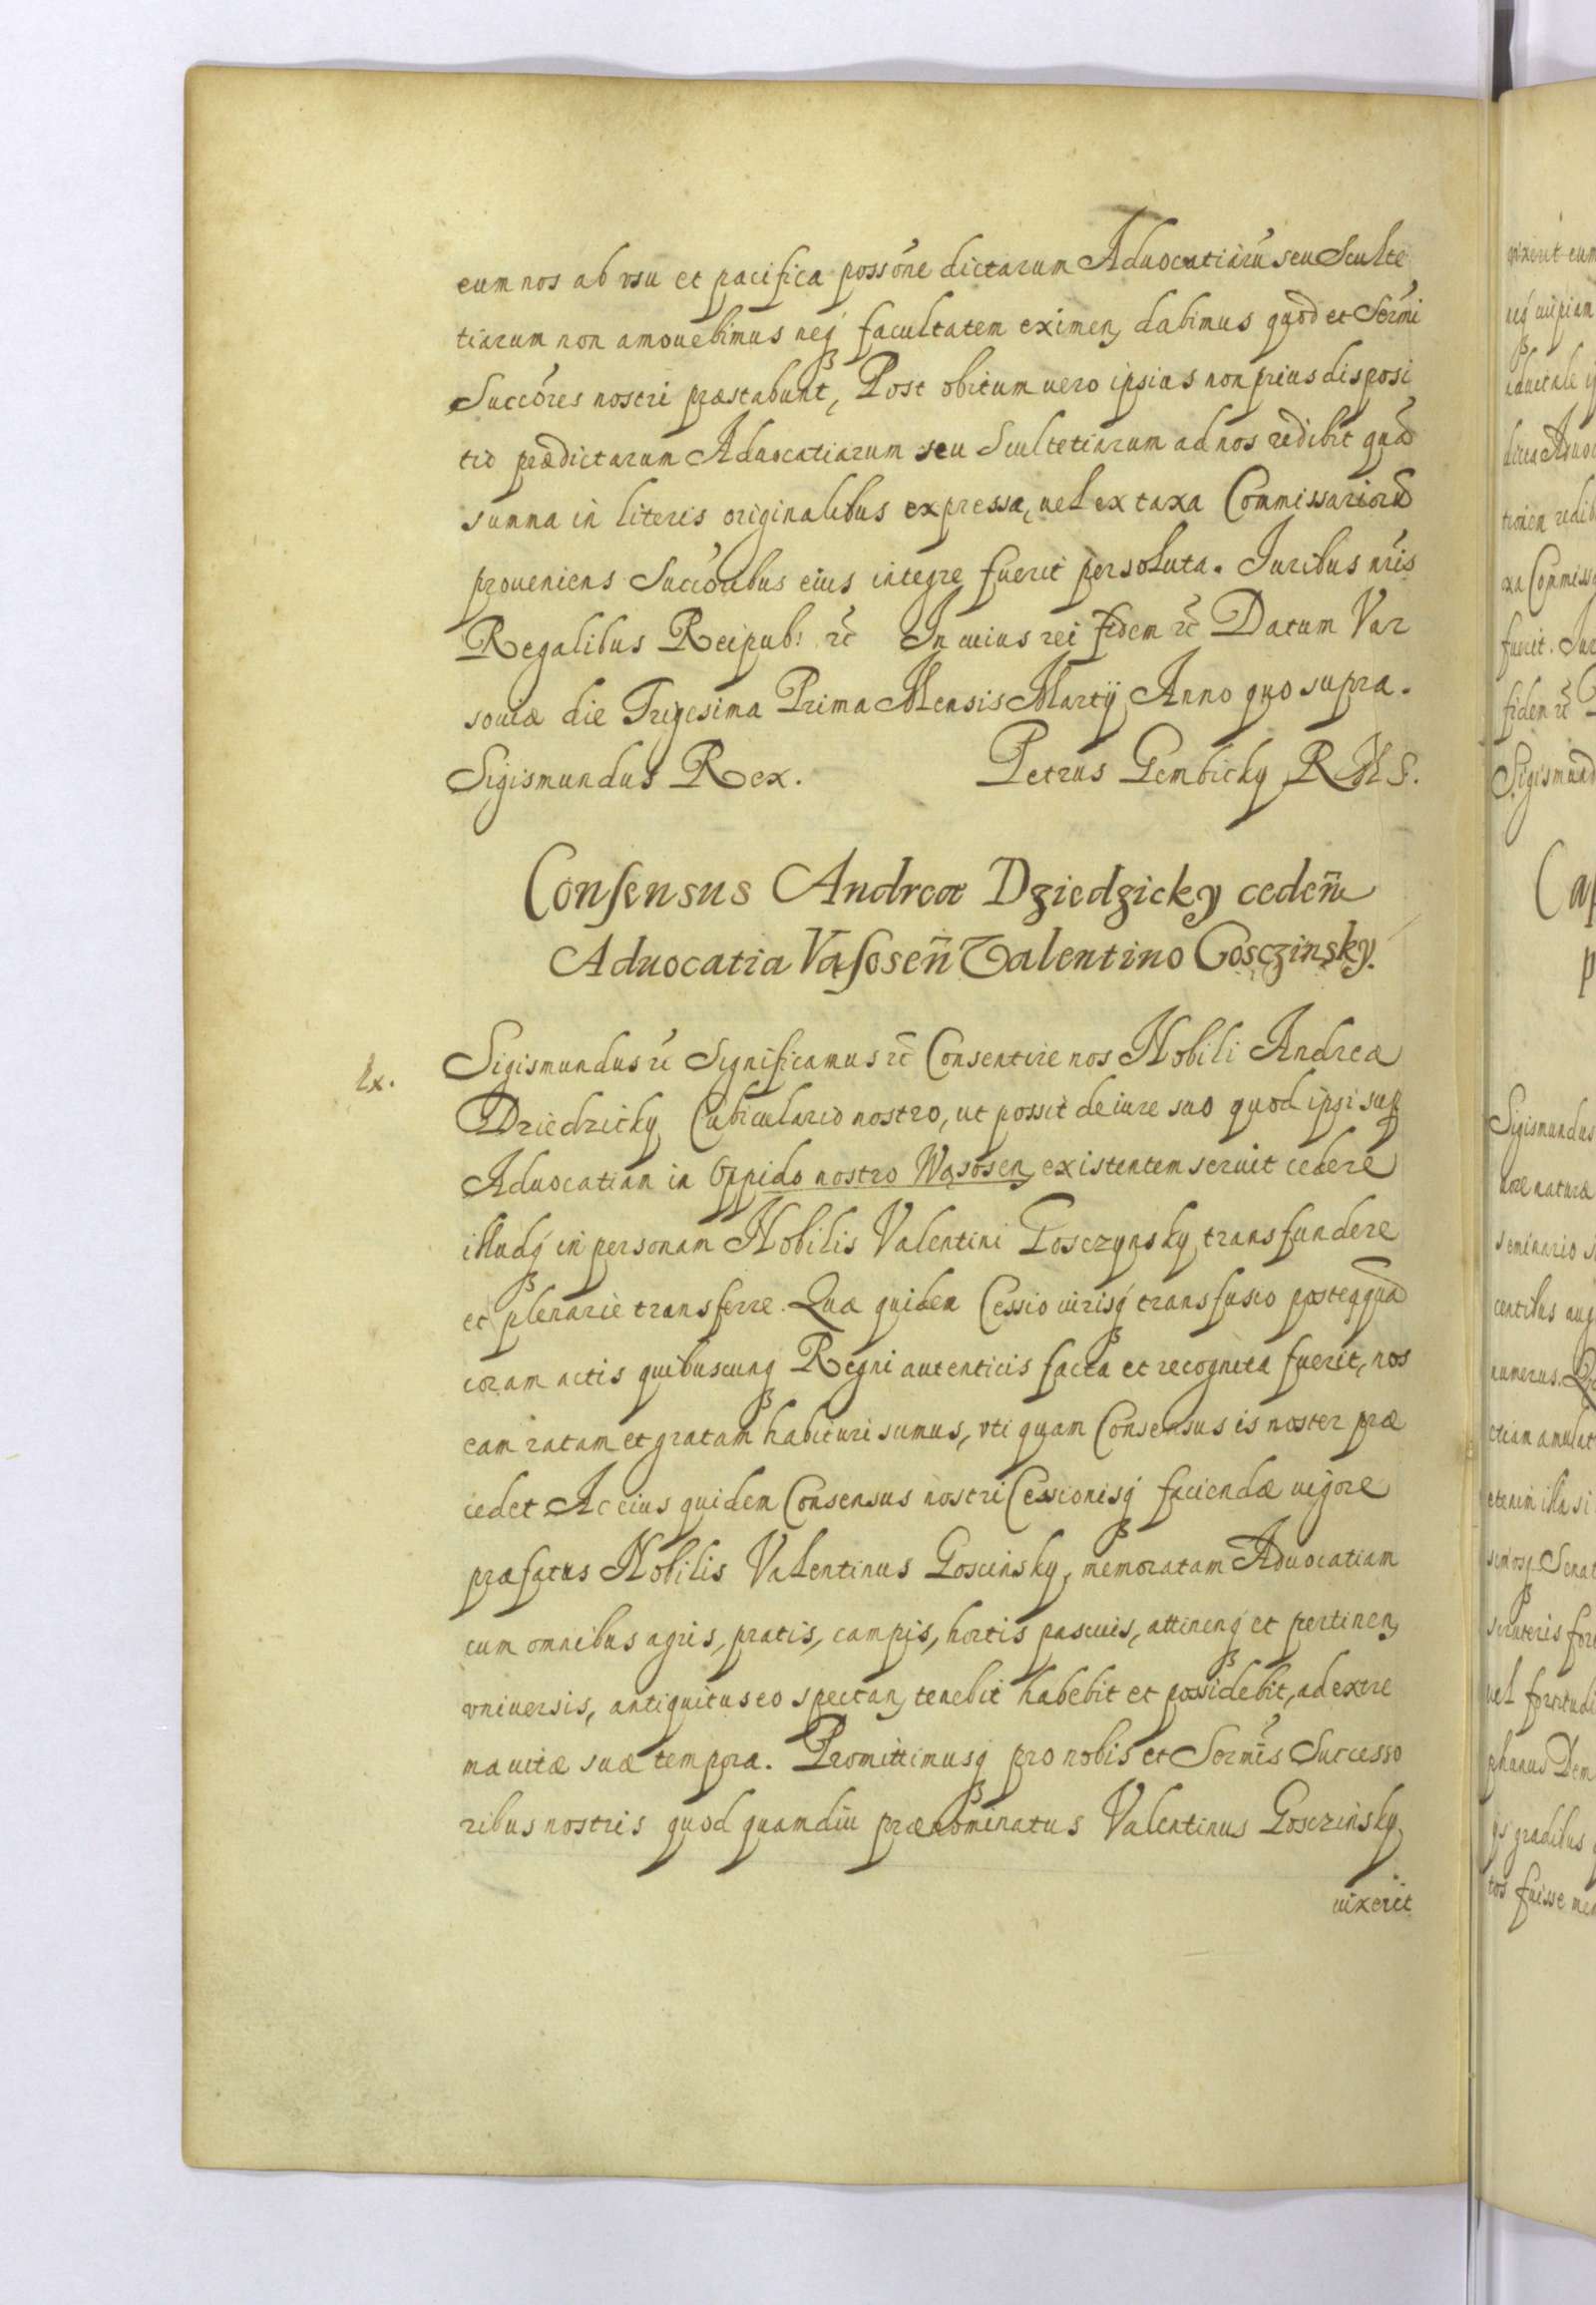 eum nos ab vsu et pacifica possōne dictarum Aduocatiarū seu Sculte
tiarum non amouebimus neq̢ facultatem eximen̢ dabimus quod et Sermi
Succōres nostri præstabunt, Post obitum uero ipsius non prius disposi
tio prædictarum Aduocatiarum seu Scultetiarum ad nos redibit quā
summa in literis originalibus expressa, uel ex taxa Commissariorū
proueniens Succōribus eius integre fuerit persoluta. Iuribus nrīs
Regalibus Reipub: rc̄ In cuius rei fidem rc̄ Datum Var
souiæ die Trigesima Prima Mensis Martij Anno quo supra.
Sigismundus Rex. Petrus Gembicky R M S.
Consensus Andreæ Dziedzicky ceden̄
Aduocatia Vasosen̄ Valentino Gosczinsky.
Sigismundus rc̄ Significamus rc̄ Consentire nos Nobili Andrea
Ex.
Dziedzicky Cubiculario nostro, ut possit de iure suo quod ipsi sup̱
Aduocatian in Oppido nostro Wąsosen̢ existentem seruit cedere
illudq̢ in personam Nobilis Valentini Gosczynsky transfundere
et plenarie transferre. Quæ quidem Cessio iurisq̢ transfusio posteaquā
coram actis quibuscunq̢ Regni autenticis facta et recognita fuerit, nos
eam ratam et gratam habituri sumus, vti quam Consensus is noster præ
cedet Ac eius quidem Consensus nostri Cessionisq̢ faciendæ uigore
præfatus Nobilis Valentinus Goscinsky, memoratam Aduocatiam
cum omnibus agris, pratis, campis, hortis pascuis, attinenq̢ et pertinen̢
vniuersis, antiquitus eo spectan̢ tenebit habebit et possidebit, ad extre
ma uitæ suæ tempora. Promittimusq̢ pro nobis et Sermis Successo
ribus nostris quod quamdiu prænominatus Valentinus Gosczinsky
uixerit